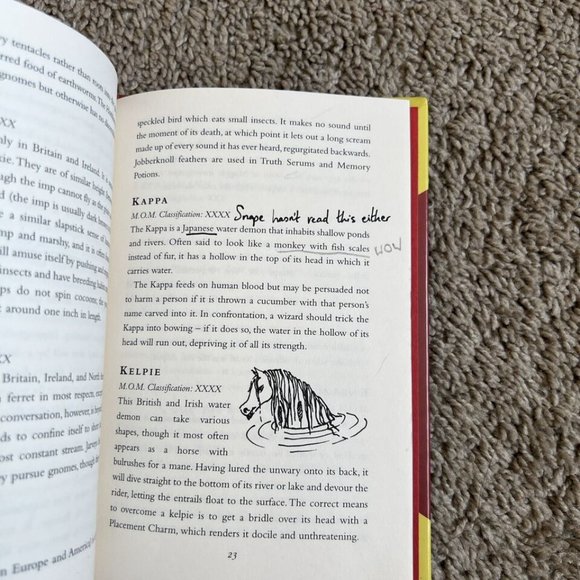 y tentacles rather than
rred food of earthworms. The
gnomes but otherwise has no
XX
nly in Britain and Ireland. It
xie. They are of similar height
gh the imp cannot fly as the
d (the imp is usually dark
e a similar slapstick sense of
mp and marshy, and it is
ill amuse itself by pushing and
insects and have breeding habits
ps do not spin cocoons; the
t around one inch in length.
XX
Britain, Ireland, and North
n ferret in most respects, except
conversation, however, is
ds to confine itself to short
most constant stream. Jarveys
y pursue gnomes, though
n Europe and America
speckled bird which eats small insects. It makes no sound until
the moment of its death, at which point it lets out a long scream
made up of every sound it has ever heard, regurgitated backwards.
Jobberknoll feathers are used in Truth Serums and Memory
Potions.
KAPPA
M.O.M. Classification: XXXX Snape hasn't read this either
The Kappa is a Japanese water demon that inhabits shallow ponds
and rivers. Often said to look like a monkey with fish scales WOW
instead of fur, it has a hollow in the top of its head in which it
carries water.
The Kappa feeds on human blood but may be persuaded not
to harm a person if it is thrown a cucumber with that person's
name carved into it. In confrontation, a wizard should trick the
Kappa into bowing – if it does so, the water in the hollow of its
head will run out, depriving it of all its strength.
KELPIE
M.O.M. Classification: XXXX
This British and Irish water
demon can take various
shapes, though it most often
appears as a horse with
bulrushes for a mane. Having lured the unwary onto its back, it
will dive straight to the bottom of its river or lake and devour the
rider, letting the entrails float to the surface. The correct means
to overcome a kelpie is to get a bridle over its head with a
Placement Charm, which renders it docile and unthreatening.
23